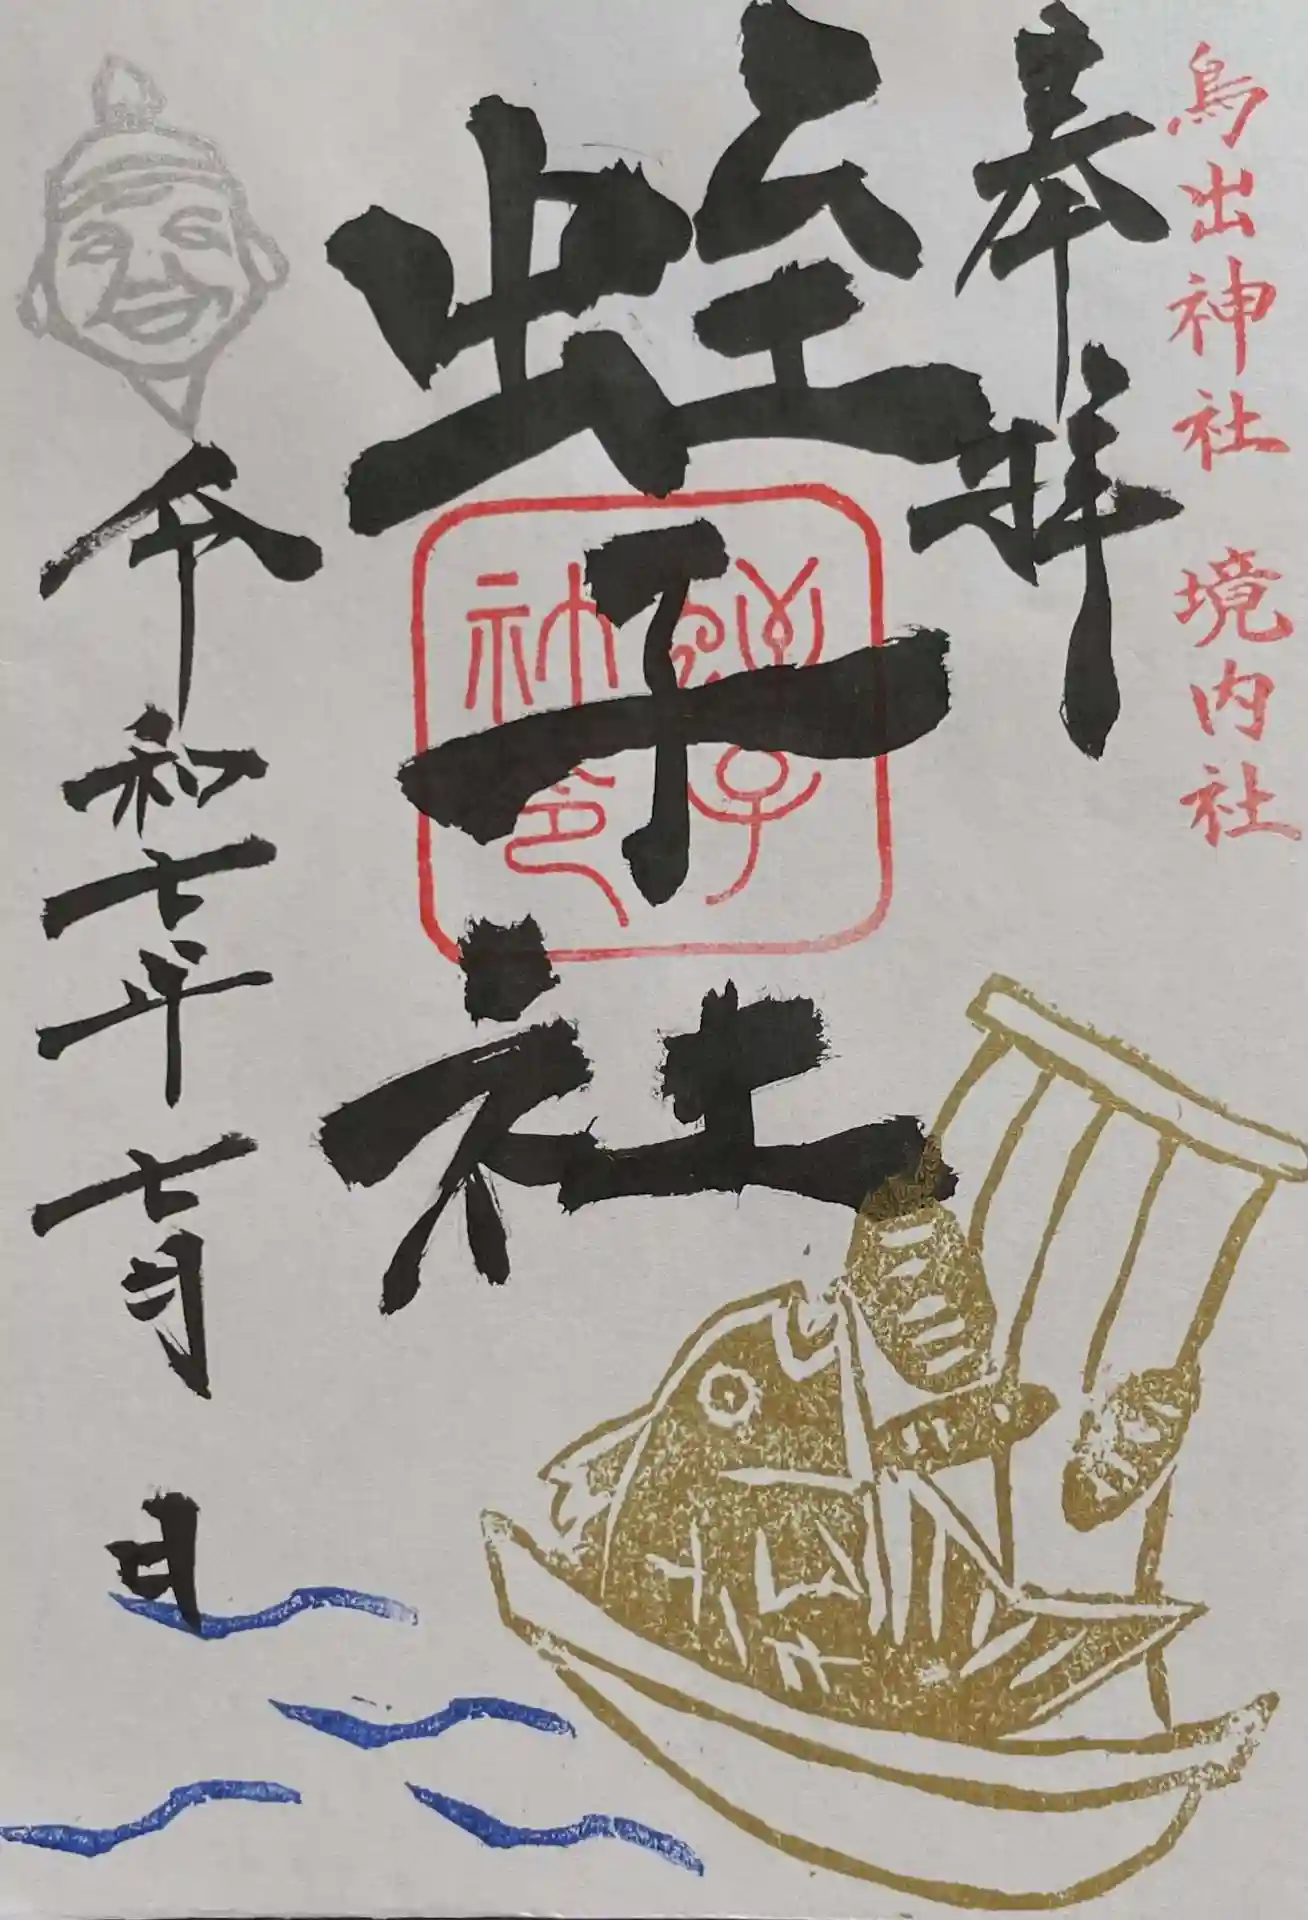 鳥出神社 境内社
奉拝
蛭子社
令和七年七月 日